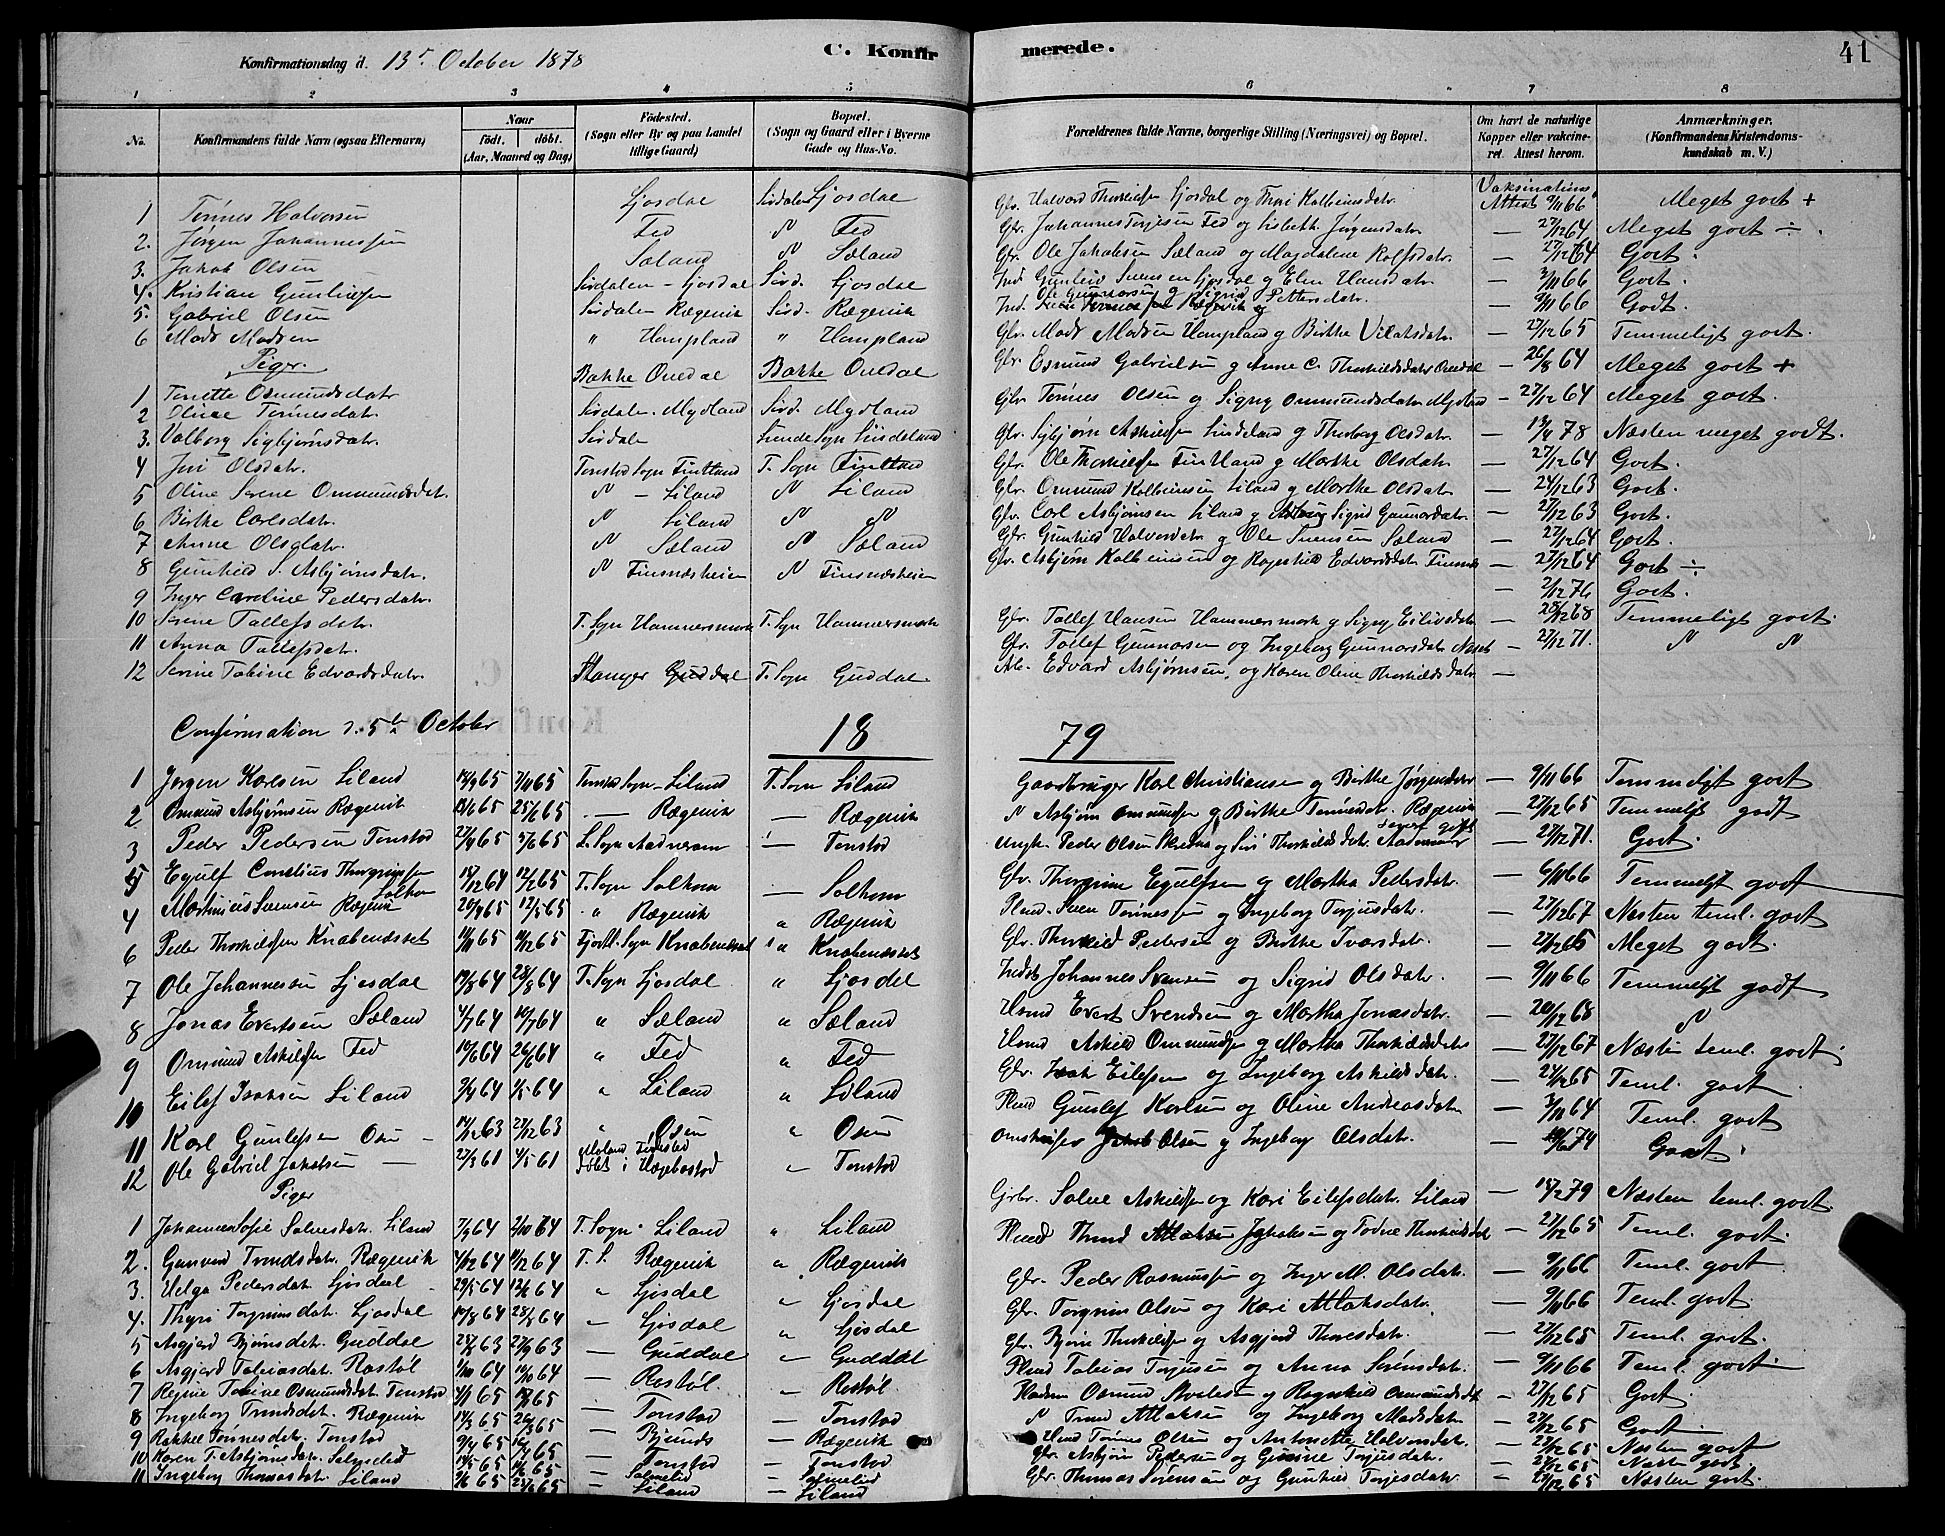 Konfirmationsdag d. 13de October 1878 C. Konfirmerede. 41
1 2 3 4 5 6 7 8
No. Konfirmandens fulde Navn (ogsaa Efternavn) Naar født. døbt. (Aar, Maaned og Dag) Fødested. (Sogn eller By og paa Landet tillige Gaard) Bopæl. (Sogn og Gaard eller i Byerne Gade og Hus-No. Forældrenes fulde Navne, borgerlige Stilling (Næringsvei) og Bopæl. Om havt de naturlige Kopper eller vakcineret. Attest herom. Anmærkninger. (Konfirmandens Kristendomskundskab m. V.)
1 Tønnes Halvorsen Ljosdal Sirdalen Ljosdal Gbr. Halvord Thorkildsen Ljosdal og Thori Kolbeinsdatr. Vaksinations Attest 9/11 66 Meget godt +
2. Jørgen Johannessen Fed " Fed Gbr. Johannes Terjesen Fed og Lisbeth Jørgensdatr. — 27/12 64 Meget godt ÷
3. Jakob Olsen Sæland " Sæland Gbr. Ole Jakobsen Sæland og Magdalene Rolfsdatr. — 27/12 64 Godt.
4. Kristian Gunleifsen Sirdalen - Ljosdal Sird. Ljosdal Ind. Gunleiv Svensen Ljosdal og Elen Hansdatr — 3/11 66 Godt.
5 Gabriel Olsen Sirdalen Rægevik Sird. Rægevik Ind. Ole Gunnarsen og Sigrid Pettersdatr. — 9/11 66 Godt.
6 Mads Madsen " Hompland " Hompland Gbr. Mads Madsen Hompland og Birthe Vilatsdatr. — 27/12 65 Temmeligt godt.
Piger.
1 Tonette Osmundsdatr Bakke Ouedal Bakke Ouedal Gbr. Esmund Gabrielsen og Anne C. Thorkildsdatr Ouedal — 26/8 64 Meget godt +
2 Oline Tønnesdatr. Sirdalen. Mydland Sird. Mydland Gbr. Tønnes Olsen og Signy Ommundsdatr Mydland — 27/12 64 Meget godt.
3. Valborg Sigbjørnsdatr. Sirdalen Lunde Sogn Lindeland Gbr. Sigbjørn Askildsen Lindeland og Thorborg Olsdatr. — 13/4 78 Næsten meget godt.
4 Jøri Olsdatr. Tonstad Sogn Fintland T. Sogn Fintland Gbr. Ole Thorkildsen Fintland og Marthe Olsdatr — 27/12 64 Godt.
5 Oline Serene Ommundsdet. " — Liland " Liland Gbr. Ommund Kolbeinsen Liland og Marthe Olsdatr — 24/12 63 Godt.
6 Birthe Carlsdatr. " Liland " " Gbr. Carl Asbjørnsen Liland og Sigrid Gunnarsdatr. — 27/12 63 Godt.
7 Anne Olsdatr. " Sæland " Sæland Gbr. Gunhild Halvorsdatr og Ole Svensen Sæland — 27/12 64 Godt.
8 Gunhild S. Asbjørnsdatr. " Finsnæsheien " Finsnæsheien Gbr. Asbjørn Kolbeinsen og Ragnhild Edvardsdatr Finsnæs — 27/12 64 Godt ÷
9 Inger Caroline Pedersdatr. — 2/12 76 Godt.
10 Serine Tollefsdatr. T. Sogn Hammersmark T. Sogn Hammersmark Gbr. Tollef Hansen Hammersmark og Signy Eilivsdatr — 28/12 68 Temmeligt godt.
11 Anna Tollefsdatr. Gbr. Tollef Gunnarsen og Ingeborg Gunnarsdatr — 27/12 71. " "
12 Serine Tobine Edvardsdatr. Stanger Guddal T. Sogn Guddal Edvard Asbjørnsen, og Karen Oline Thorkildsdatr —
Confirmation d. 5te October 18 79
1 Jørgen Karlsen Liland 18/9 65 7/11 65 Tonstad Sogn - Liland T. Sogn Liland Gaardbruger Karl Christiansen og Birthe Jørgensdatr — 9/11 66 Temmeligt godt
2 Omund Asbjørnsen Rægevik 13/6 65 25/6 65 — Rægevik — Rægevik " Asbjørn Omundsen og Birthe Tønnesdtr. Rægevik — 27/12 65 Temmeligt godt
3 Peder Pedersen Tonstad 27/4 65 5/6 65 L. Sogn Aadneram — Tonstad Ungk. Peder Olsen Skredaa og Siri Thorkildsdatr. Aadneram — 27/12 71. Godt.
5 Egulf Conelius Thorgrimsen Solhom 18/12 64 12/2 65 T. Sogn Solhom — Solhom Gbr. Thorgrim Egulfsen og Martha Pedersdatr. — 6/11 66 Temmeligt godt
4 Martinius Svensen Rægevik 20/4 65 12/5 65 " Rægevik " Rægevik Plmd. Sven Tønnessen og Ingeborg Terjusdatr. — 27/12 67 Næsten teml. godt
6 Peder Thorkildsen Knabenæset 11/11 65 10/12 65 Fjotl. Sogn Knabenæset " Knabenæset Gbr. Thorkild Pedersen og Birthe Ivarsdatr. — 27/12 65 Meget godt.
7 Ole Johannessen Ljosdal 19/8 64 28/8 64 T. Sogn Ljosdal " Ljosdal Indst. Johannes Svensen og Sigrid Olsdatr. — 9/11 66 Temmeligt godt
8 Jonas Evertsen Sæland 4/7 64 10/7 64 " Sæland " Sæland Hsmd Evert Svendsen og Martha Jonasdatr. — 20/12 68 "
9 Omund Askildsen Fed 19/6 64 26/6 64 " Fed " Fed Hsmd Askild Ommundsen og Martha Thorkildsdatr — 27/12 67 Næsten teml. godt
10 Eilef Isaksen Liland 2/4 64 1/5 64 " Liland " Liland Gbr. Isak Eilefsen og Ingeborg Askildsdatr. — 27/12 65 Teml. godt
11 Karl Gunlefsen Osen 14/12 63 27/12 63 " Osen " Osen Plmd Gunlef Karlsen og Oline Andreasdatr — 3/11 64 Teml. godt
12 Ole Gabriel Jakobsen — 27/3 61 4/5 61 døbt i Hægebostad " Tonstad Jakob Olsen og Ingeborg Olsdatr. — 19/6 74 Godt.
Piger
1 Johanne Sofie Salvesdatr. Liland 7/9 64 2/10 64 T. Sogn Liland " Liland Grbr. Salve Askildsen og Kari Eilefsdatr. Liland — 15/2 79 Næsten teml. godt
2. Gunvid Trondsdatr. Rægevik 4/12 64 11/12 64 T. S. Rægevik " Rægevik Plmd Thrond Atlaksen og Todne Thorkildsdat — 27/12 65 Teml. godt.
3. Helga Pedersdatr. Ljosdal 29/5 64 12/6 64 " Ljosdal " Ljosdal Gbr. Peder Rasmussen og Inger M. Olsdatr. — 9/11 66 Teml. godt.
4. Thyri Torgrimsdatr. Ljosdal 19/8 64 28/8 64 — Ljosdal " Ljosdal Gbr. Torgrim Olsen og Kari Atlaksdatr. — 9/11 66 Teml. godt.
5 Asgjerd Bjørnsdatr. Guddal 25/8 63 27/9 63 — Guddal — Guddal Gbr. Bjørn Thorkildsen og Asgjerd Thoresdatr. — 27/12 65 Teml. godt.
6 Asgjerd Tobiasdat. Rostøl 1/10 64 19/10 64 — Rostøl. — Rostøl Plmd Tobias Terjesen og Anna Sørensdatr. — 9/11 66 Teml. godt
7 Rejine Tobine Osmundsdat. Tonstad 4/1 65 65 — Tonstad — Tonstad Pladsm Osmund og Ragnhild Ommundsdt — 27/12 65 Godt.
8 Ingeborg Trondsdat. Rægevik 14/3 65 26/3 65 — — Rægevik " Trond Atlaksen og Ingeborg Madsdatr — 27/12 65 Godt.
9 Rakkel Tønnesdatr. Tonstad 9/4 65 65 — Tonstad — Tonstad Hsmd Tønnes Olsen og Antonette Halvorsdatr. — 27/12 65 Næsten godt
10 Karen T. Asbjørnsdatr. Salmelid 14/5 65 65 — Salmelid — Salmelid Gbr. Asbjørn Pedersen og Gunine Terjesdatr. — 27/12 65 Næsten godt
11 Ingeborg Thomasdatr. Liland 9/6 65 65 — Liland — Liland Gbr. Thomas Sørensen og Gunhild Terjesdatr. — 27/12 65 Næsten godt.